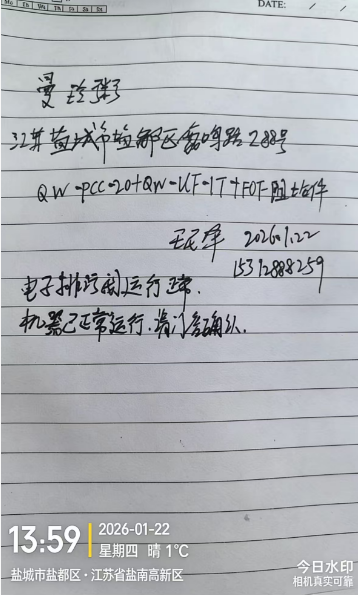 Mo Tu We Th Fr Sa Su
DATE: / /
曼玲粥
江苏盐城市盐都区鹿鸣路288号
QW-PCC-20+QW-UF-1T+FOF-阻垢件
2026.1.22
15312888259
电子排污阀运行正常.
机器已正常运行.请门店确认.
13:59
2026-01-22
星期四 晴 1℃
盐城市盐都区·江苏省盐南高新区
今日水印
相机真实可靠